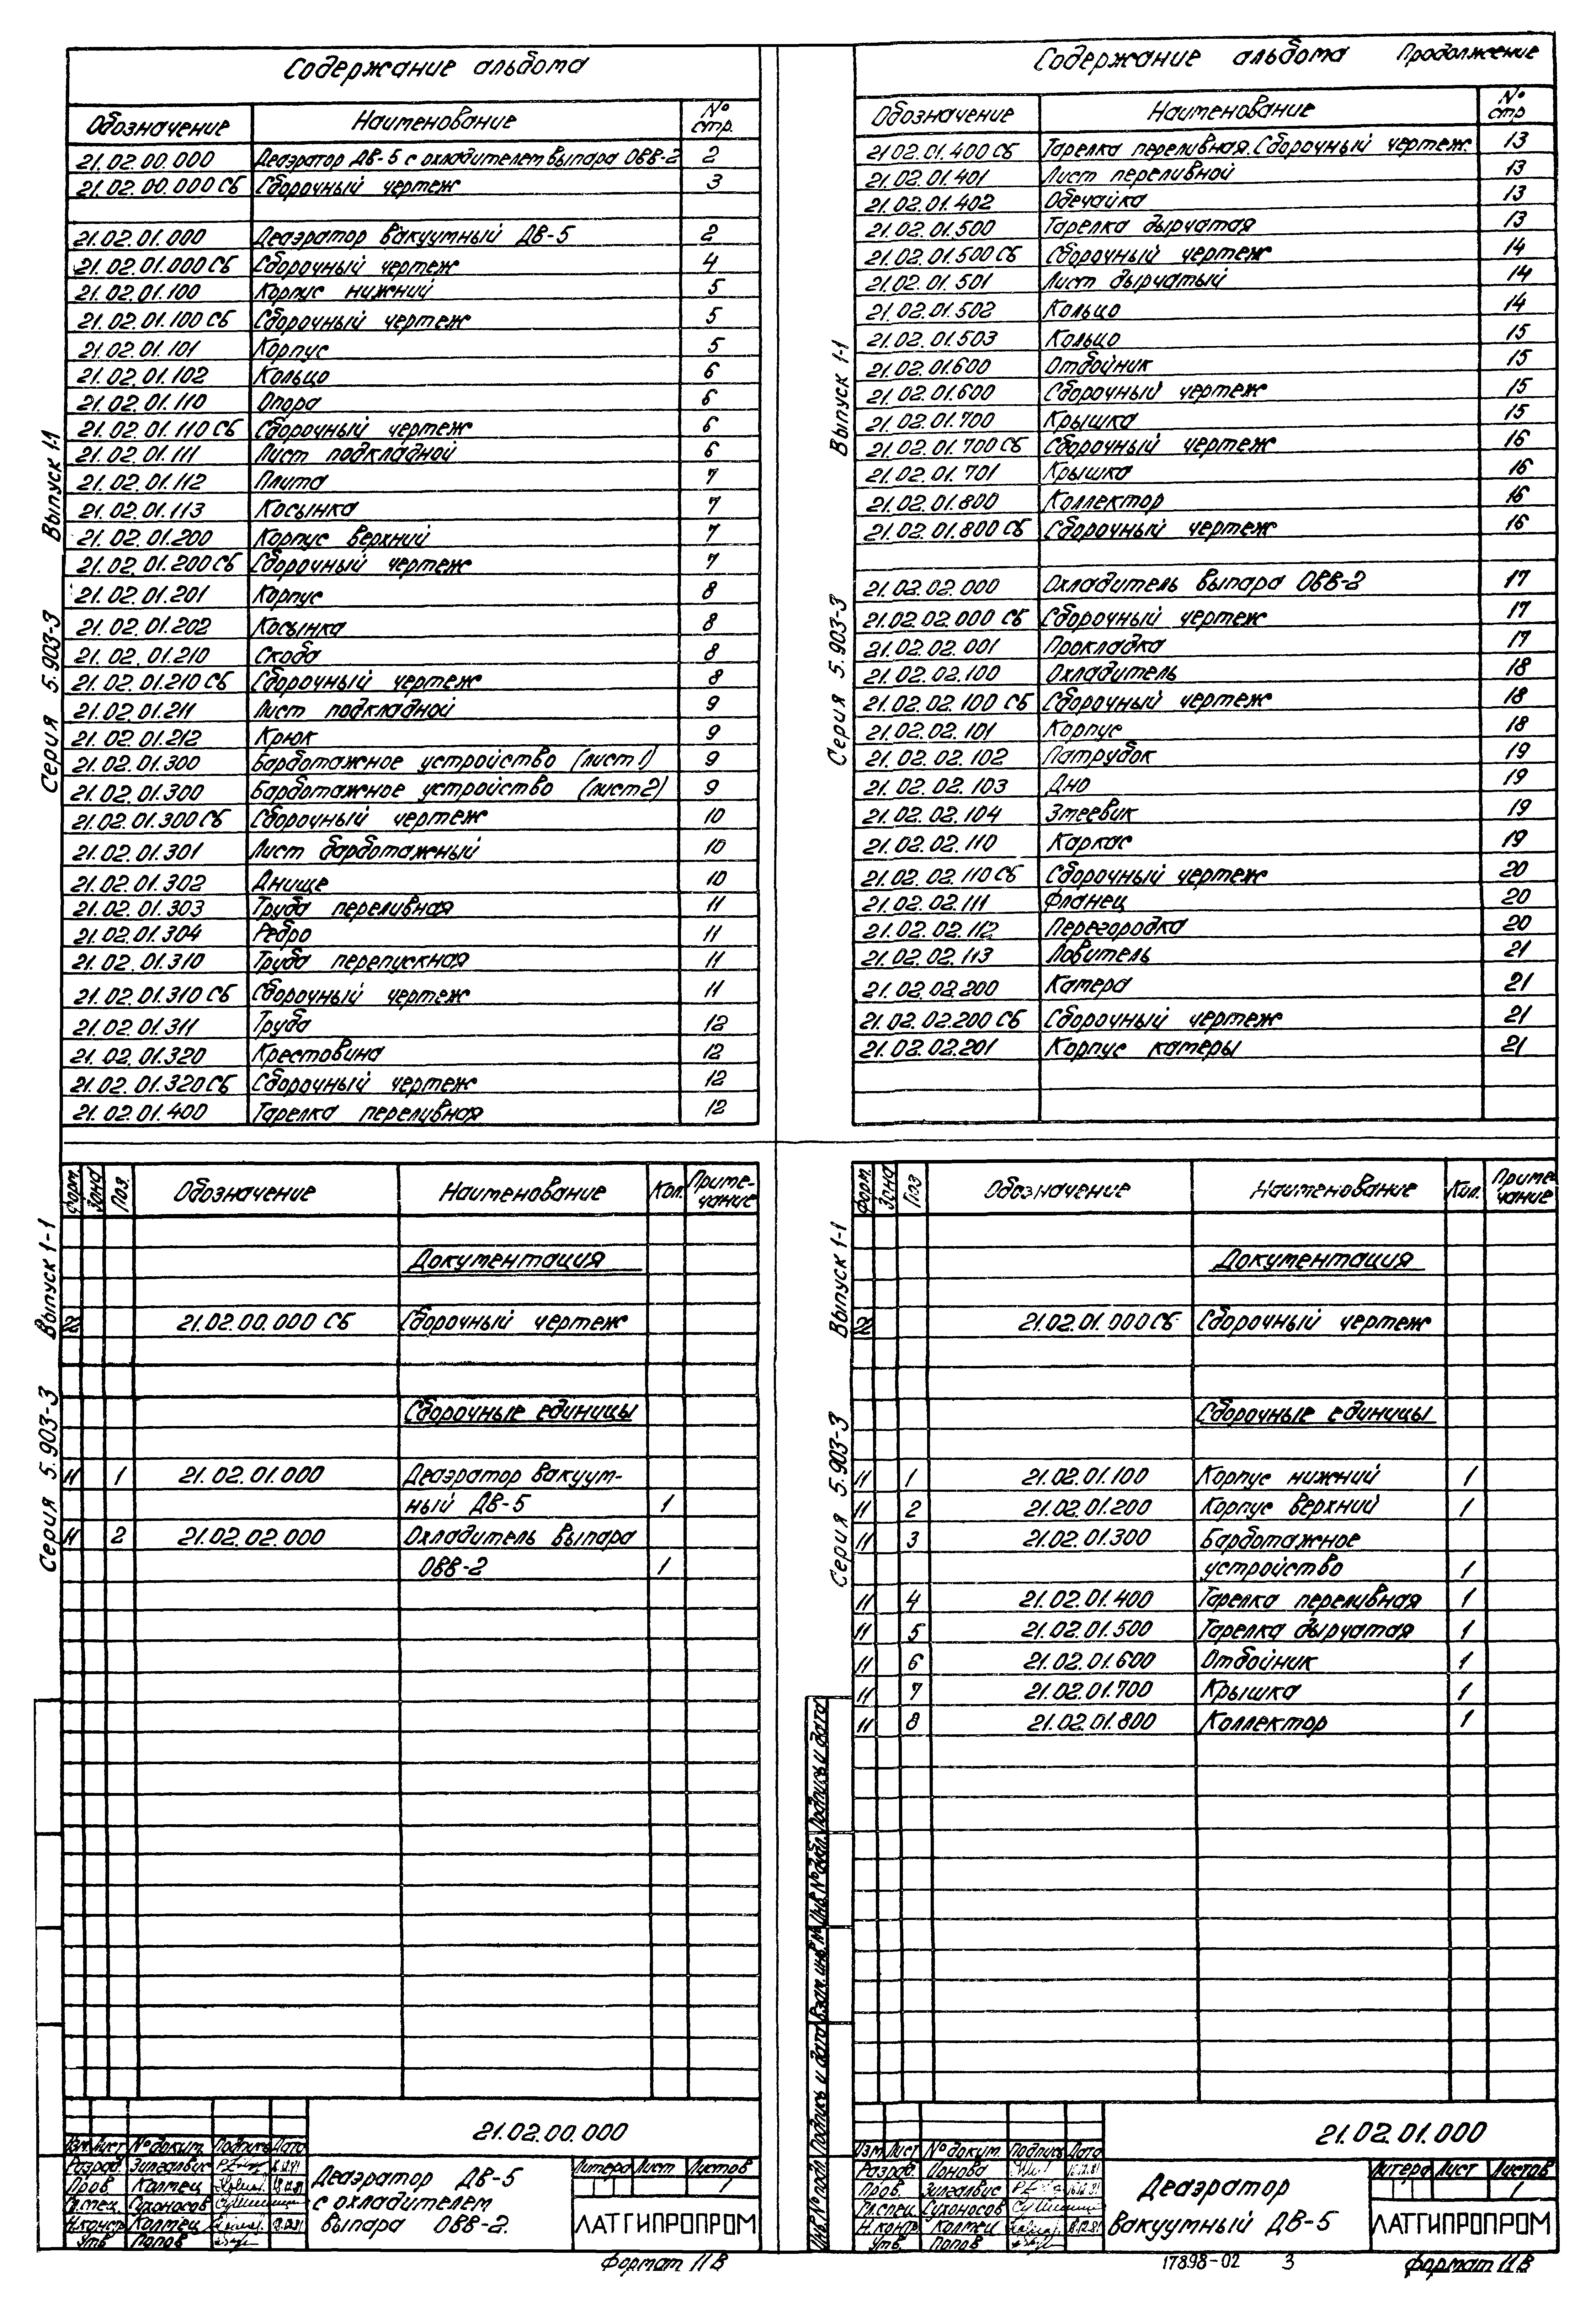 Содержание альбома
Обозначение Наименование № стр.
21.02.00.000 Деаэратор ДВ-5 с охладителем выпара ОВВ-2 2
21.02.00.000 СБ Сборочный чертеж 3
21.02.01.000 Деаэратор вакуумный ДВ-5 2
21.02.01.000 СБ Сборочный чертеж 4
21.02.01.100 Корпус нижний 5
21.02.01.100 СБ Сборочный чертеж 5
21.02.01.101 Корпус 5
21.02.01.102 Кольцо 6
21.02.01.110 Опора 6
21.02.01.110 СБ Сборочный чертеж 6
21.02.01.111 Лист подкладной 6
21.02.01.112 Плита 7
21.02.01.113 Косынка 7
21.02.01.200 Корпус верхний 7
21.02.01.200 СБ Сборочный чертеж 7
21.02.01.201 Корпус 8
21.02.01.202 Косынка 8
21.02.01.210 Скоба 8
21.02.01.210 СБ Сборочный чертеж 8
21.02.01.211 Лист подкладной 9
21.02.01.212 Крюк 9
21.02.01.300 Барботажное устройство (лист 1) 9
21.02.01.300 Барботажное устройство (лист 2) 9
21.02.01.300 СБ Сборочный чертеж 10
21.02.01.301 Лист барботажный 10
21.02.01.302 Днище 10
21.02.01.303 Труба переливная 11
21.02.01.304 Ребро 11
21.02.01.310 Труба перепускная 11
21.02.01.310 СБ Сборочный чертеж 11
21.02.01.311 Труба 12
21.02.01.320 Крестовина 12
21.02.01.320 СБ Сборочный чертеж 12
21.02.01.400 Тарелка переливная 12
Серия 5.903-3 Выпуск 1-1
Содержание альбома Продолжение
Обозначение Наименование № стр
21.02.01.400 СБ Тарелка переливная. Сборочный чертеж. 13
21.02.01.401 Лист переливной 13
21.02.01.402 Обечайка 13
21.02.01.500 Тарелка дырчатая 13
21.02.01.500 СБ Сборочный чертеж 14
21.02.01.501 Лист дырчатый 14
21.02.01.502 Кольцо 14
21.02.01.503 Кольцо 15
21.02.01.600 Отбойник 15
21.02.01.600 Сборочный чертеж 15
21.02.01.700 Крышка 15
21.02.01.700 СБ Сборочный чертеж 16
21.02.01.701 Крышка 16
21.02.01.800 Коллектор 16
21.02.01.800 СБ Сборочный чертеж 16
21.02.02.000 Охладитель выпара ОВВ-2 17
21.02.02.000 СБ Сборочный чертеж 17
21.02.02.001 Прокладка 17
21.02.02.100 Охладитель 18
21.02.02.100 СБ Сборочный чертеж 18
21.02.02.101 Корпус 18
21.02.02.102 Патрубок 19
21.02.02.103 Дно 19
21.02.02.104 Змеевик 19
21.02.02.110 Каркас 19
21.02.02.110 СБ Сборочный чертеж 20
21.02.02.111 Фланец 20
21.02.02.112 Перегородка 20
21.02.02.113 Ловитель 21
21.02.02.200 Камера 21
21.02.02.200 СБ Сборочный чертеж 21
21.02.02.201 Корпус камеры 21
Серия 5.903-3 Выпуск 1-1
Форм. Зона Поз. Обозначение Наименование Кол. Примечание
Документация
21.02.00.000 СБ Сборочный чертеж
Сборочные единицы
11 1 21.02.01.000 Деаэратор вакуум-
ный ДВ-5 1
11 2 21.02.02.000 Охладитель выпара
ОВВ-2 1
Серия 5.903-3 Выпуск 1-1
21.02.00.000
Изм. Лист № докум. Подпись Дата
Разраб. Зилгалвис
Пров. Колтец
Гл.спец. Сухоносов
Н.контр. Колтец
Утв. Попов
Деаэратор ДВ-5
с охладителем
выпара ОВВ-2.
Литера Лист Листов
1
ЛАТГИПРОПРОМ
Формат 11В
Форм. Зона Поз Обозначение Наименование Кол. Примечание
Документация
21.02.01.000 СБ Сборочный чертеж
Сборочные единицы
11 1 21.02.01.100 Корпус нижний 1
11 2 21.02.01.200 Корпус верхний 1
11 3 21.02.01.300 Барботажное
устройство 1
11 4 21.02.01.400 Тарелка переливная 1
11 5 21.02.01.500 Тарелка дырчатая 1
11 6 21.02.01.600 Отбойник 1
11 7 21.02.01.700 Крышка 1
11 8 21.02.01.800 Коллектор 1
Серия 5.903-3 Выпуск 1-1
Инв.№ подл. Подпись и дата Взам. инв.№ Инв.№ дубл. Подпись и дата
21.02.01.000
Изм Лист № докум. Подпись Дата
Разраб. Ионова
Пров. Зилгалвис
Гл.спец. Сухоносов
Н.контр. Колтец
Утв. Попов
Деаэратор
вакуумный ДВ-5
Литера Лист Листов
1
ЛАТГИПРОПРОМ
17898-02 3 Формат 11В